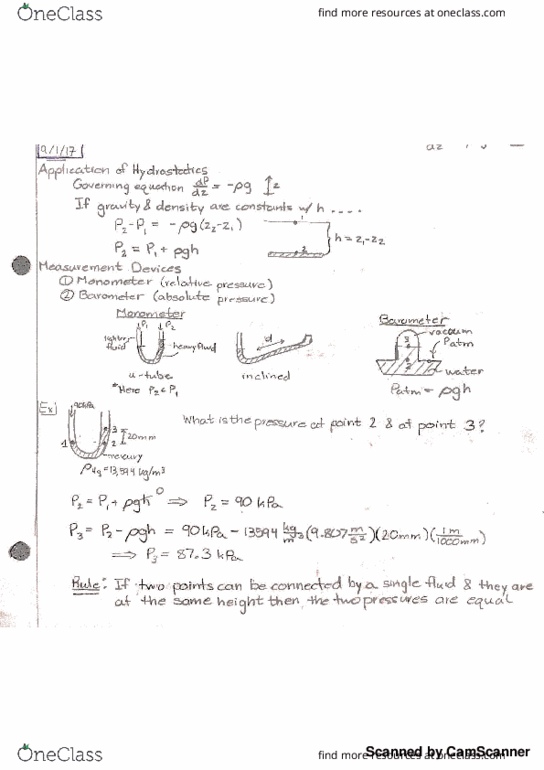 OneClass
find more resources at oneclass.com
9/1/17
Application of Hydrostatics
Governing equation dP/dz = -ρg ↕z
If gravity & density are constants w/ h ....
P₂-P₁ = -ρg(z₂-z₁)
P₂ = P₁ + ρgh
1
2
h = z₁-z₂
Measurement Devices
① Manometer (relative pressure)
② Barometer (absolute pressure)
Manometer
Barometer
P₁ P₂
lighter fluid
heavy fluid
d
vacuum
Patm
water
u-tube
inclined
*Here P₂<P₁
Patm = ρgh
Ex
90kPa
1
3
2
20mm
mercury
ρHg = 13,594 kg/m³
What is the pressure at point 2 & at point 3?
P₂ = P₁ + ρgh⁰ ⇒ P₂ = 90 kPa
P₃ = P₂ - ρgh = 90kPa - 13594 kg/m³ (9.807 m/s²)(20mm)(1m/1000mm)
⇒ P₃ = 87.3 kPa
Rule: If two points can be connected by a single fluid & they are
at the same height then the two pressures are equal
OneClass
find more resources at oneclass.com
Scanned by CamScanner